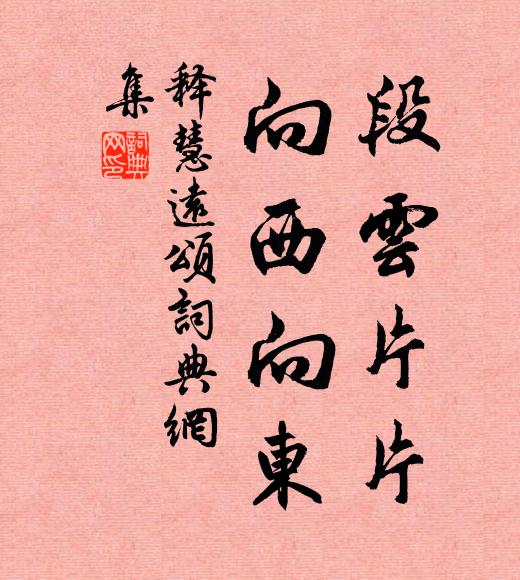 段雲片片
向西向東
释慧遠頌詞典網
集
詞典
网印